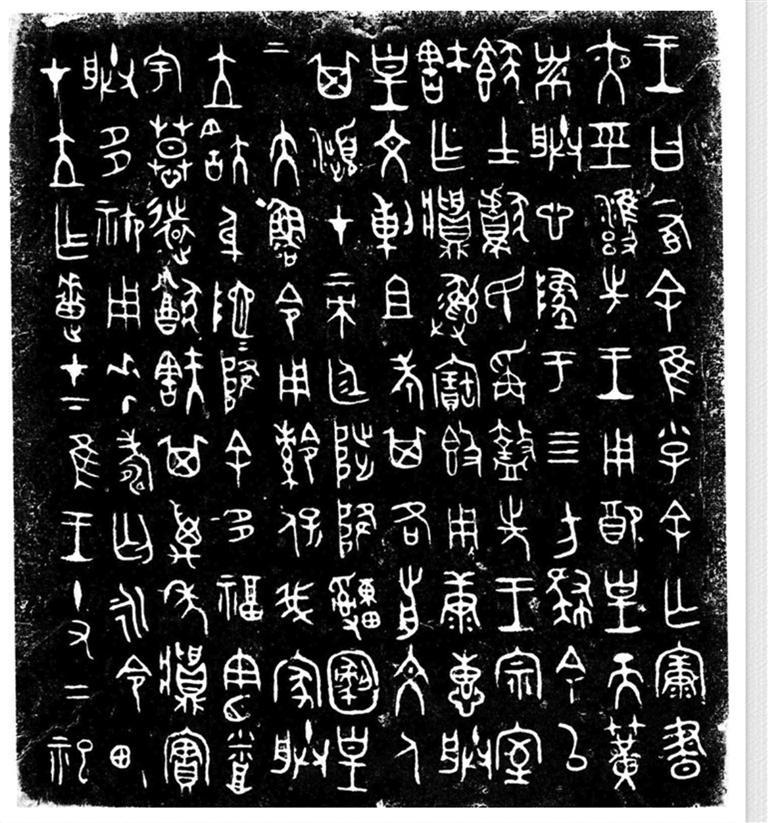 王曰有余隹小子余亡康晝
夜巠雝先王用配皇天簧
黹朕心墜于四方肆余以
餕士獻民爯盩先王宗室
㝬作𩰫彝寶簋用康惠朕
皇文剌祖考其各前文人
其瀕在帝廷陟降申恪皇
帝大魯令用令保我家朕
位㝬身阤阤降余多福憲烝
宇慕遠猷㝬其萬年𩰫實
朕多禦用𠦪壽匄永令畯
在位作疐在下隹王十又二祀